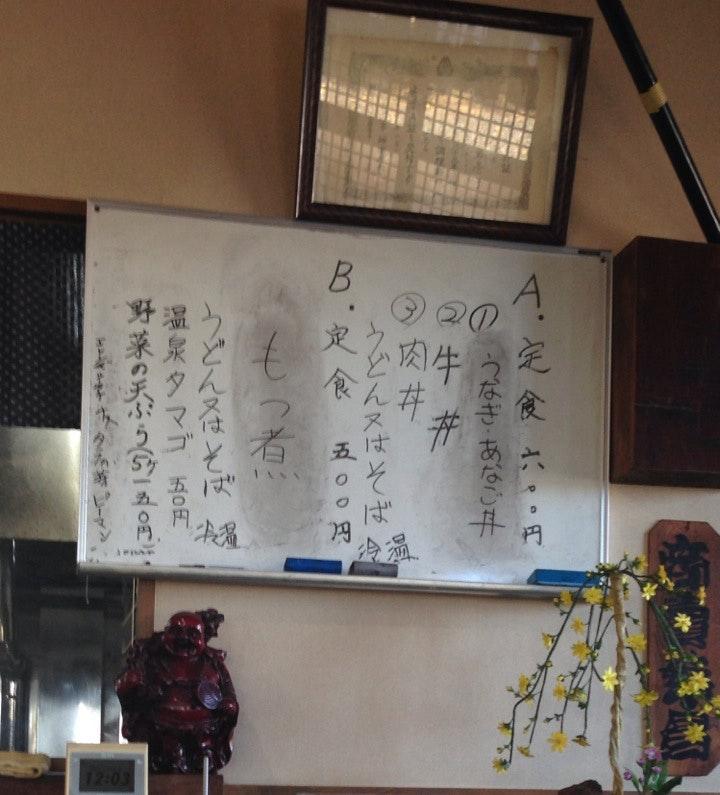 A. 定食 六〇〇円
① うなぎ・あなご丼
② 牛丼
③ 肉丼
うどん又はそば 温冷
B. 定食 五〇〇円
もつ煮
うどん又はそば 温冷
温泉タマゴ 五〇円
野菜の天ぷら(5ケ一五〇円)
ピーマン
12:03